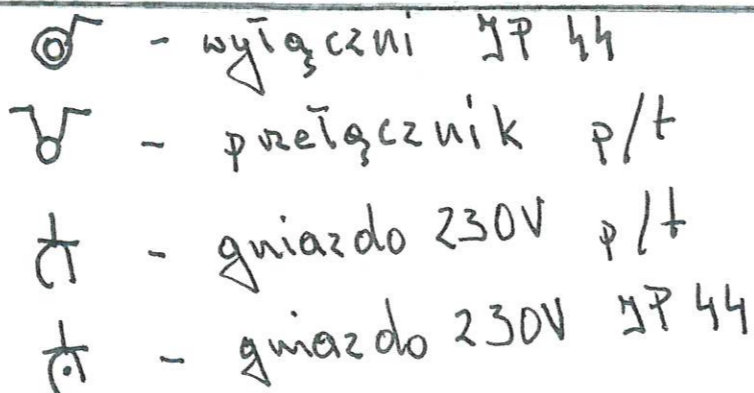 - wyłączni IP 44
- przełącznik p/t
- gniazdo 230V p/t
- gniazdo 230V IP 44